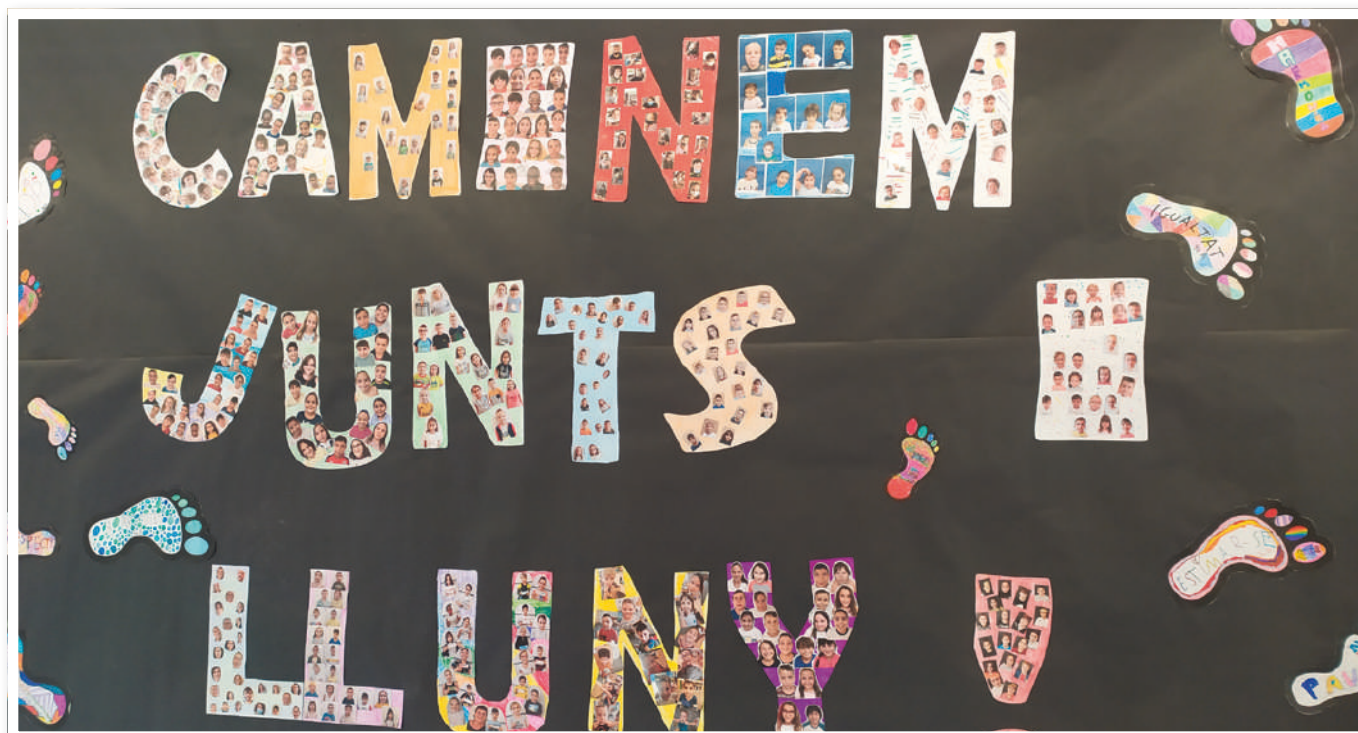 CAMINEM
JUNTS I
LLUNY !
IGUALTAT
ESTIMAR-SE
PAU